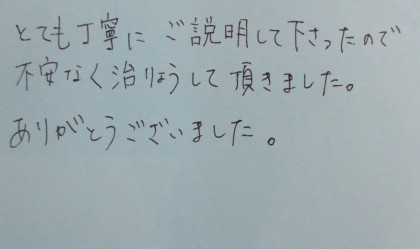 とても丁寧に ご説明して下さったので
不安なく治りょうして頂きました。
ありがとうございました。